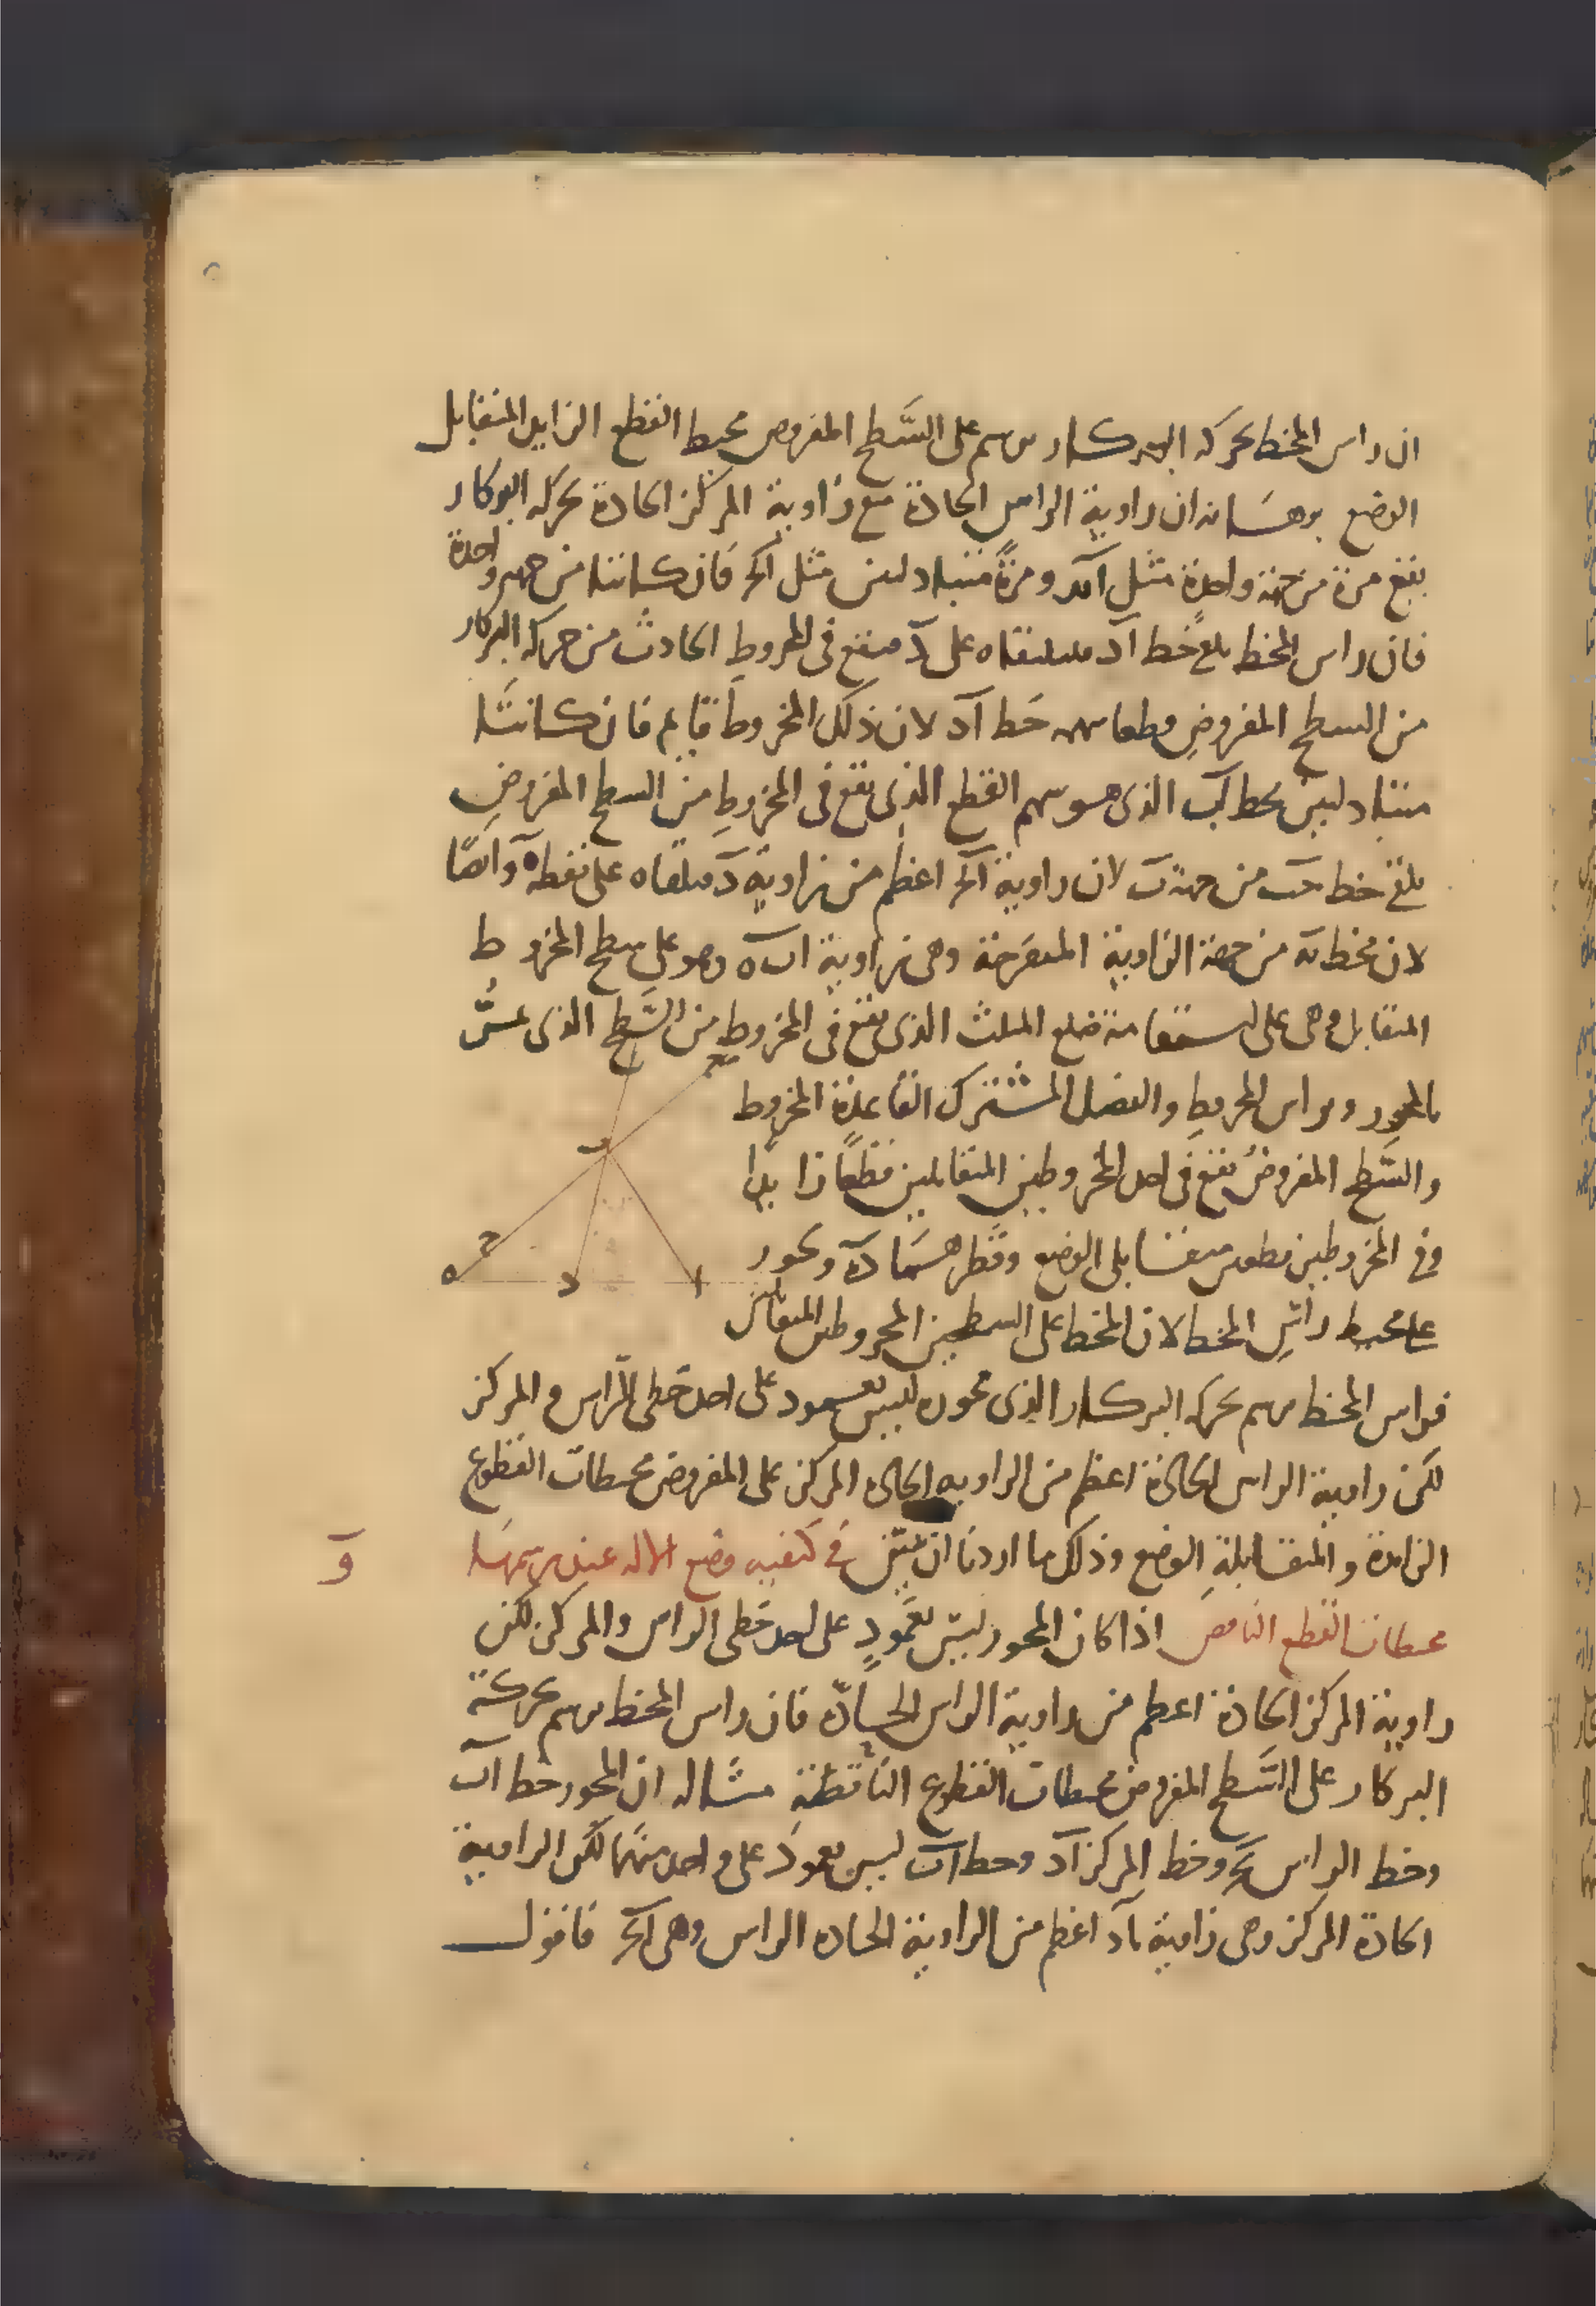 ان راس المخط بحركه البركار يرسم على السَّطح المفروض محيط القطع الزايد المتقابل
الوضع برهسانه ان زاوية الراس الحادة مع زاوية المركز الحادة بحركه البركار
يقع مرة من جهة واحدة مثل آد ومرةً متبادلين مثل اكر فان كانتا من جهه واحدة
فان راس المخط يلقى خط آد على د فيقع فى المخروط الحادث من حركه البركار
من السطح المفروض قطعا سهمه خط آد لان ذلك المخروط قايم فان كانتا
متبادلين يحط اب الذى هو سهم القطع الذى يقع فى المخروط من السطح المفروض
يلقى خط حب من جهة ب لان زاوية اكر اعظم من زاوية د فيلقاه على نقطه ه وايضًا
لان مخط به من جهة الزاوية المنفرجة وهى زاوية اب ه وهو على سطح المخروط
المتقابل وهى على استقامة ضلع المثلث الذى يقع فى المخروط من السَّطح الذى يمسُّ
بالمحور وبراس المخروط والفضل المشترك القاعدة المخروط
والسَّطح المفروضُ يقع فى احد المخروطين المتقابلين قطعًا زايدًا
وفى المخروطين قطعين متقابلى الوضع وقطرهما ده ويحور
على محيط راس المخط لان المخط على السطحين المخروطين المتقابلين
فراس المخط يرسم بحركه البركار الذى محوره ليس بعمود على احد خطى الراس والمركز
لكن زاوية الراس الحادة اعظم من الزاويه الحاده المركز على المفروض محيطات القطوع
الزايدة والمتقابلة الوضع وذلك ما اردنا ان نبيّن فى كيفيه وضع الاله عند رسمها
و
محيطات القطع الناقص اذا كان المحور ليس بعمودٍ على احد خطى الراس والمركز لكن
زاوية المركز الحادة اعظم من زاوية الراس الحادّه فان راس المخط يرسم بحركة
البركار على السَّطح المفروض محيطات القطوع الناقصة مثاله ان المحور خط اب
وخط الراس بح وخط المركز آد وخط اب ليس بعمود على واحد منهما لكن الزاوية
الحادة المركز وهى زاوية باد اعظم من الزاوية الحاده الراس وهى اكر فاقول
ب
ح
ه
د
ا